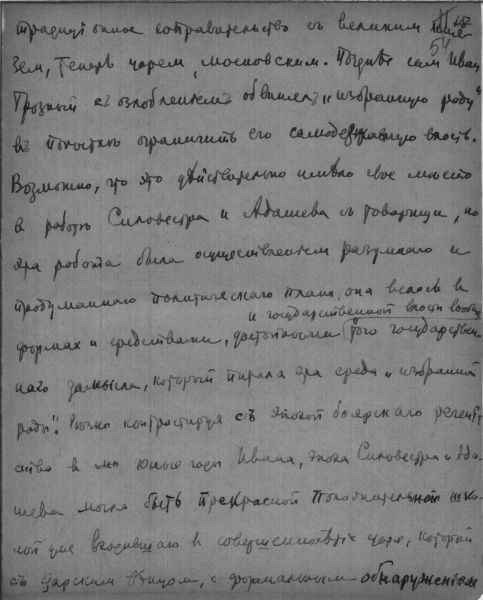 традиционное соправительство съ великим княземъ
54
зем, теперь царем, московским. Позднѣе сам Иван
Грозный съ озлобленіемъ обвинялъ „избранную раду"
въ попытке ограничить его самодержавную власть.
Возможно, что это действительно имело свое место
в работе Сильвестра и Адашева съ товарищи, но
эта работа была осуществленіем разумнаго и
продуманнаго политическаго плана, она велась в
и государственной власти вообще
формах и средствами, достойными того государствен-
наго замысла, который питала эта среда „избранной
рады". Резко контрастируя съ эпохой боярскаго регент-
ства в юные годы Ивана, эпоха Сильвестра и Ада-
шева могла быть прекрасной показательной шко-
лой уже входившаго в совершеннолѣтіе царя, который
съ царским вѣнцом, с формальным обнаруженіем